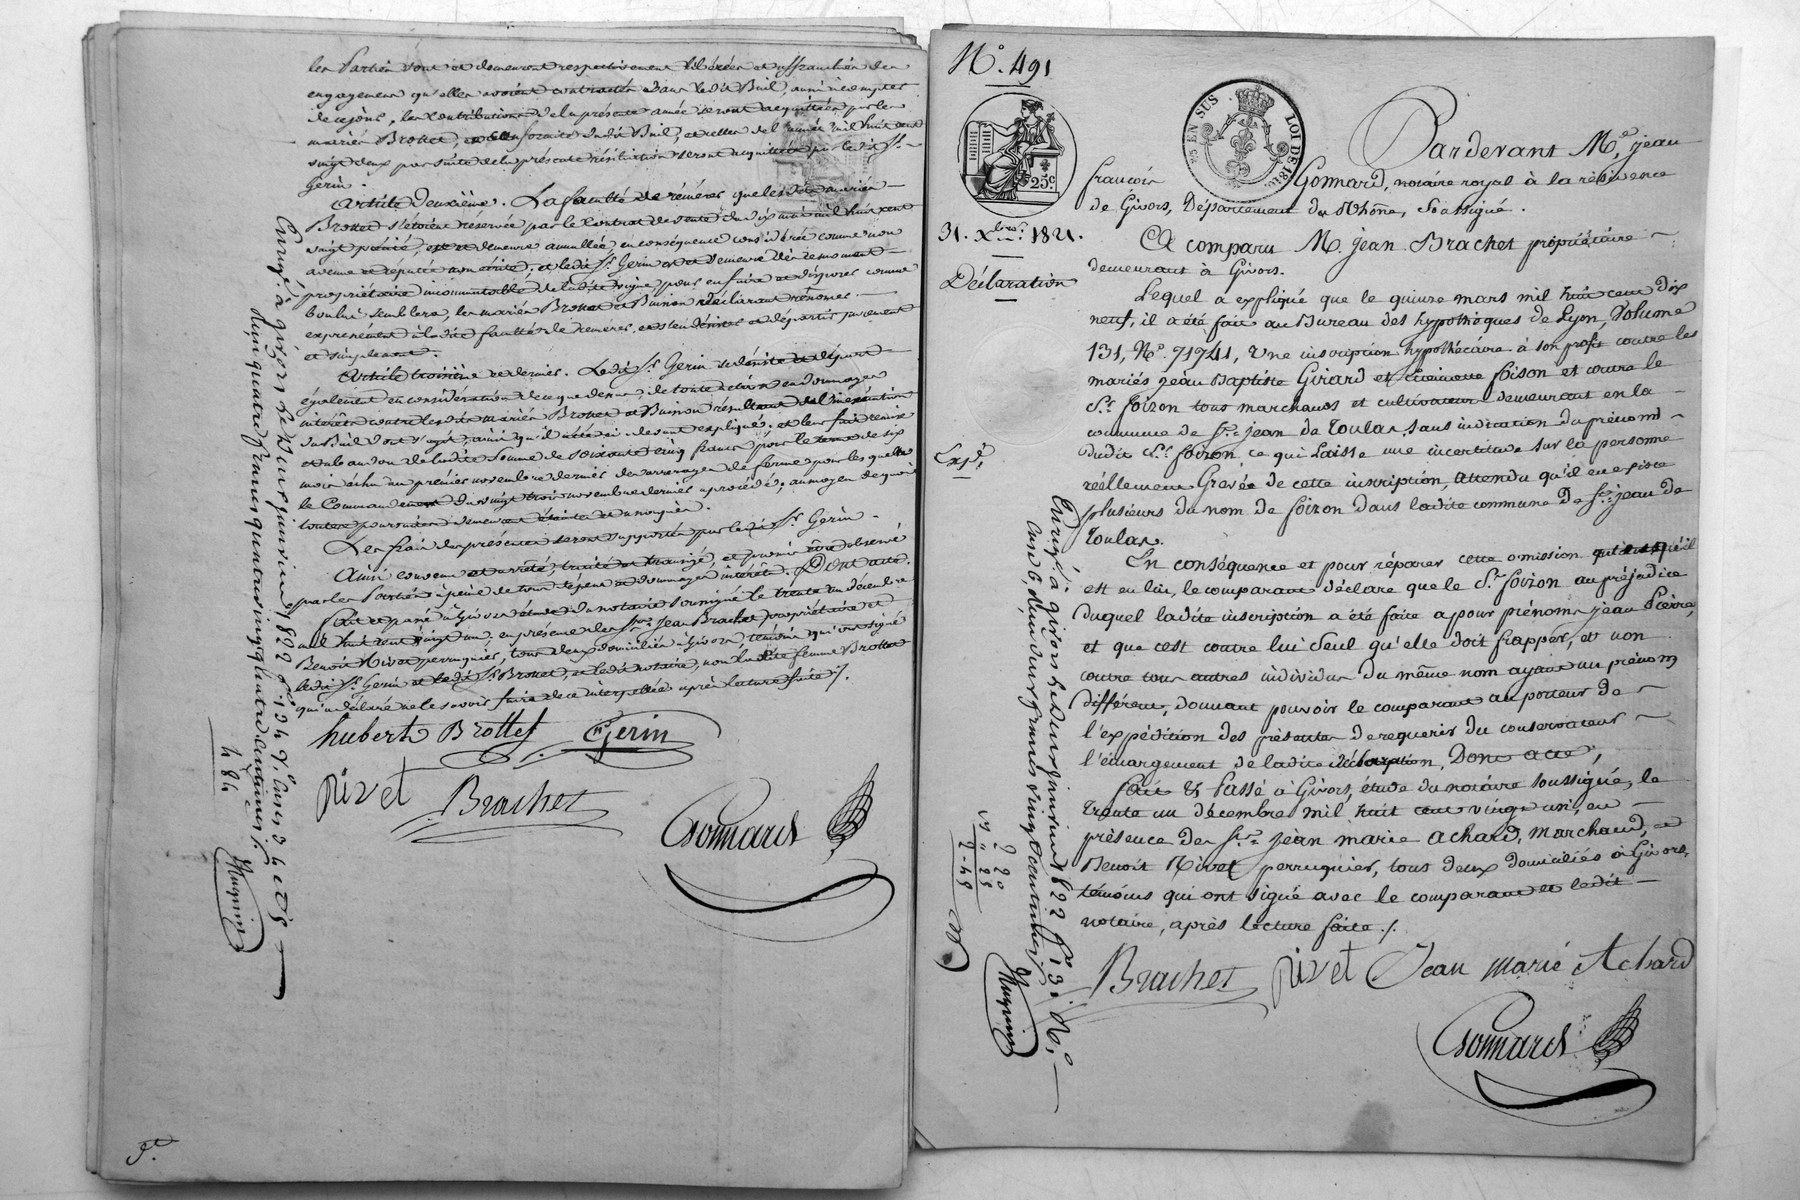 les Parties sont et demeurent respectivement libérées et affranchies des
engagemens qu'elles avoient contractés dans ledit Bail, aussi à compter
de ce jour, les Contributions de la présente année seront acquittées par les
mariés Brottet, et celles de l'année mil huit cent
vingt deux par suite de la présente résiliation seront acquittées par ledit Sr.
Gerin.
Article deuxième. La faculté de réméré que lesdits mariés
Brottet s'étoient réservée par le Contrat de vente du dix mai mil huit cent
vingt, est et demeure annullée, en conséquence considérée comme non
avenue et ledit Sr. Gerin est et demeure dès ce moment
propriétaire incommutable de ladite vigne, pour en faire et disposer comme
bon lui semblera, les mariés Brottet et Buisson déclarant renoncer
expressément à ladite faculté de réméré, et s'en désister et départir purement
et simplement.
Article troisième et dernier. Ledit Sr. Gerin se désiste et départ
également en considération de ce que dessus, de toute action en dommages
intérêts contre lesdits mariés Brottet et Buisson résultant de l'inexécution
du Bail dont s'agit, ainsi qu'il a été ci-devant expliqué, et leur fait remise
et abandon de ladite somme de soixante cinq francs pour le terme de six
mois échu au premier novembre dernier des arrérages de ferme pour lesquels
le Commandement du vingt trois novembre dernier a procédé, au moyen de quoi
toutes poursuites demeurent éteintes et annulées.
Les frais des présentes seront supportés par ledit Sr. Gerin.
Ainsi convenu et arrêté, traité et transigé, et promis être observé
par les Parties à peine de tous dépens et dommages intérêts. Dont acte.
Fait et passé à Givors étude du notaire soussigné le trente un décembre
mil huit cent vingt un, en présence des Srs. Jean Brachet propriétaire et
Benoit Rivet perruquier, tous deux domiciliés à Givors, témoins qui ont signé
ledit Sr. Gerin et ledit Sr. Brottet, et ledit notaire, non ladite femme Brottet
qui a déclaré ne le savoir faire de ce interpellée après lecture faite ./.
hubert Brottet Gerin
Rivet Brachet Gonnard
Enregé. à givors le deux janvier 1822 fo. 124 Vo. Cases 3 4 et 5
484
N°. 491
25c
EN SUS
LOI DE 1816
31. Xbre. 1821.
Déclaration
Exp.
Pardevant Me. jean
françois Gonnard, notaire royal à la résidence
de Givors, Département du Rhône, Soussigné.
A comparu M. jean Brachet propriétaire
demeurant à Givors.
Lequel a expliqué que le quinze mars mil huit cent dix
neuf, il a été fait au Bureau des hypothèques de Lyon, Volume
131, No. 71941, une inscription hypothécaire à son profit contre les
mariés jean Baptiste Girard et foison et contre le
Sr. foizon tous marchands et cultivateurs demeurant en la
commune de St. jean de toulas, sans indication du prénom
dudit Sr. foizon, ce qui Laisse une incertitude sur la personne
réellement Grevée de cette inscription, attendu qu'il en existe
plusieurs du nom de foizon dans ladite commune de St. jean de
toulas.
En conséquence et pour réparer cette omission
est en lui, le comparant déclare que le Sr. foizon au préjudice
duquel ladite inscription a été faite a pour prénoms jean Pierre,
et que c'est contre lui seul qu'elle doit frapper, et non
contre tous autres individus du même nom ayant un prénom
différent, donnant pouvoir le comparant au porteur de
l'expédition des présentes de requérir du conservateur
l'émargement de ladite déclaration, Dont acte,
fait & Passé à Givors, étude du notaire soussigné, le
trente un décembre mil huit cent vingt un, en
présence des Srs. jean marie achard, marchand, et
Benoit Rivet perruquier, tous deux domiciliés à Givors,
témoins qui ont signé avec le comparant et ledit
notaire, après lecture faite ./.
Brachet Rivet Jean Marie Achard
Gonnard
Enregé. à givors le deux janvier 1822 fo. 131. Ro.
Case 6 deux francs vingt centimes